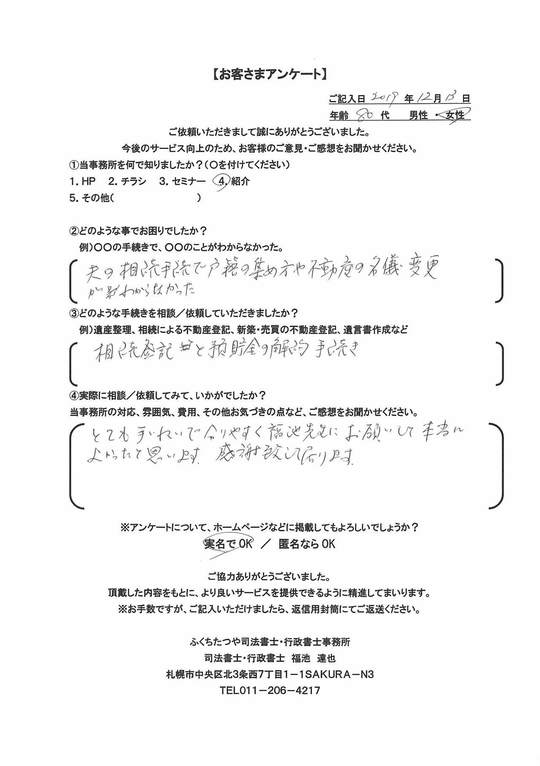 【お客さまアンケート】
ご記入日 2019 年 12 月 13 日
年齢 80 代 男性 ・ 女性
ご依頼いただきまして誠にありがとうございました。
今後のサービス向上のため、お客様のご意見・ご感想をお聞かせください。
①当事務所を何で知りましたか？(○を付けてください)
1. HP 2. チラシ 3. セミナー 4. 紹介
5. その他( )
②どのような事でお困りでしたか？
例)○○の手続きで、○○のことがわからなかった。
夫の相続手続で戸籍の集め方や不動産の名儀変更
がわからなかった
③どのような手続きを相談／依頼していただきましたか？
例)遺産整理、相続による不動産登記、新築・売買の不動産登記、遺言書作成など
相続登記と預貯金の解約手続き
④実際に相談／依頼してみて、いかがでしたか？
当事務所の対応、雰囲気、費用、その他お気づきの点など、ご感想をお聞かせください。
とてもていねいで分りやすく福池先生にお願いして本当に
よかったと思います 感謝致して居ります
※アンケートについて、ホームページなどに掲載してもよろしいでしょうか？
実名でOK ／ 匿名ならOK
ご協力ありがとうございました。
頂戴した内容をもとに、より良いサービスを提供できるように精進してまいります。
※お手数ですが、ご記入いただけましたら、返信用封筒にてご返送ください。
ふくちたつや司法書士・行政書士事務所
司法書士・行政書士 福池 達也
札幌市中央区北3条西7丁目1－1SAKURA－N3
TEL011－206－4217